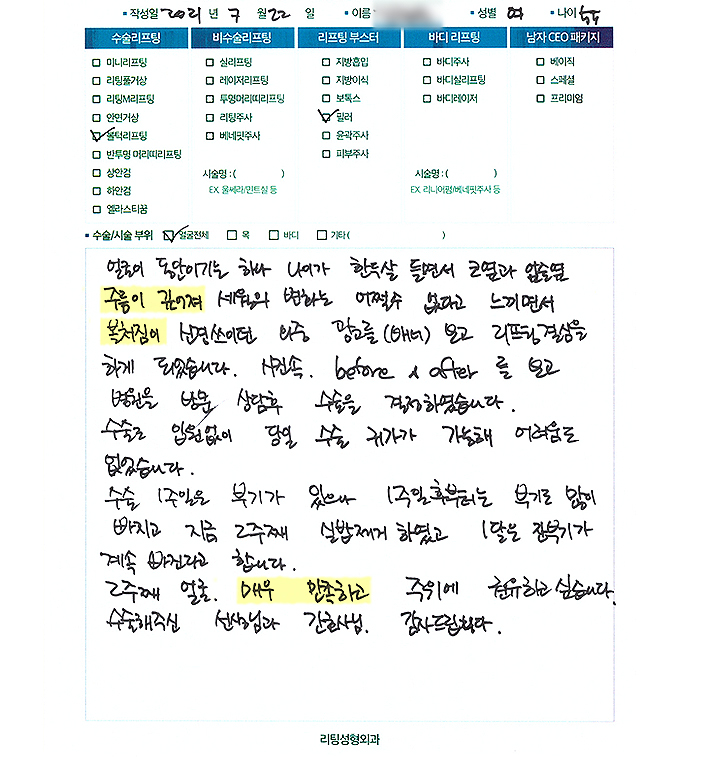 ▪ 작성일 2021 년 7 월 22 일 ▪ 이름 ▪ 성별 여 ▪ 나이
수술리프팅 비수술리프팅 리프팅 부스터 바디 리프팅 남자 CEO 패키지
□ 미니리프팅 □ 실리프팅 □ 지방흡입 □ 바디주사 □ 베이직
□ 리팅풀거상 □ 레이저리프팅 □ 지방이식 □ 바디실리프팅 □ 스페셜
□ 리팅M리프팅 □ 투명머리띠리프팅 □ 보톡스 □ 바디레이저 □ 프리미엄
□ 안면거상 □ 리팅주사 ☑ 필러
☑ 볼턱리프팅 □ 베네핏주사 □ 윤곽주사
□ 반투명 머리띠리프팅 □ 피부주사
□ 상안검 시술명 : ( ) 시술명 : ( )
□ 하안검 EX. 울쎄라/민트실 등 EX. 리니어펌/베네핏주사 등
□ 엘라스티꿈
▪ 수술/시술 부위 ☑ 얼굴전체 □ 목 □ 바디 □ 기타 ( )
얼굴이 동안이기는 하나 나이가 한두살 들면서 코옆과 입술옆
주름이 깊어져 세월의 변화는 어쩔수 없다고 느끼면서
볼처짐이 신경쓰이던 와중 광고를 (배너) 보고 리프팅 결심을
하게 되었습니다. 사진속. before & after 를 보고
병원을 방문 상담후 수술을 결정하였습니다.
수술도 입원없이 당일 수술 귀가가 가능해 어려움도
없었습니다.
수술 1주일은 붓기가 있으나 1주일후부터는 붓기도 많이
빠지고 지금 2주째 실밥제거 하였고 1달은 잔붓기가
계속 빠진다고 합니다.
2주째 얼굴. 매우 만족하고 주위에 권유하고 싶습니다.
수술해주신 선생님과 간호사님. 감사드립니다.
리팅성형외과